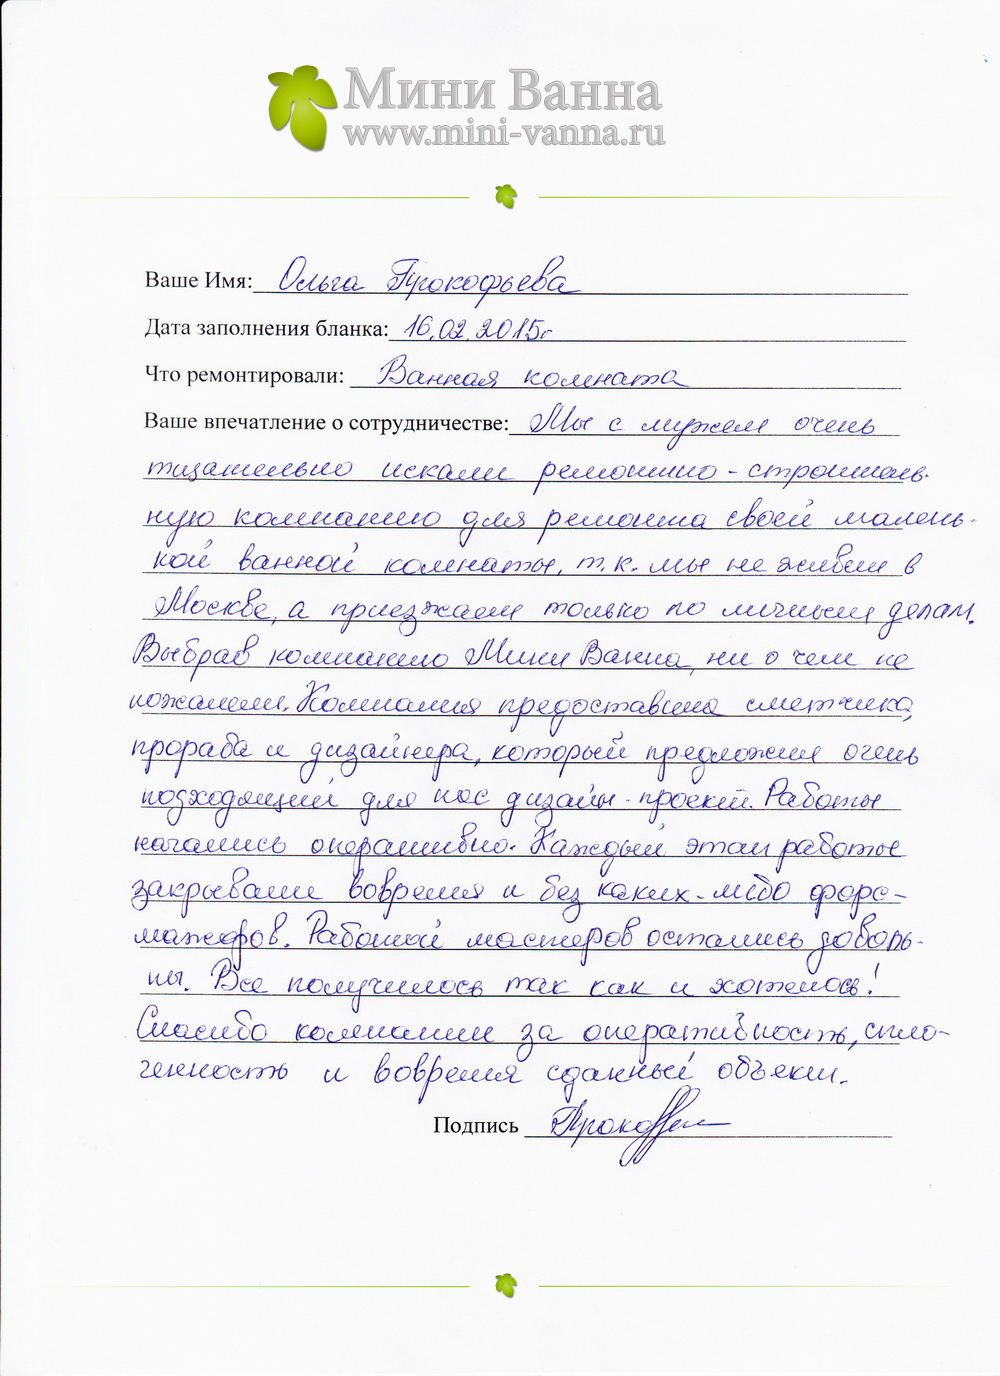 Мини Ванна
www.mini-vanna.ru
Ваше Имя: Ольга Прокофьева
Дата заполнения бланка: 16.02.2015г
Что ремонтировали: Ванная комната
Ваше впечатление о сотрудничестве: Мы с мужем очень
тщательно искали ремонтно-строитель-
ную компанию для ремонта своей малень-
кой ванной комнаты, т.к. мы не живем в
Москве, а приезжаем только по личным делам.
Выбрав компанию Мини Ванна, ни о чем не
пожалели. Компания предоставила сметчика,
прораба и дизайнера, который предложил очень
подходящий для нас дизайн-проект. Работы
начались оперативно. Каждый этап работы
закрывали вовремя и без каких-либо форс-
мажоров. Работой мастеров остались доволь-
ны. Все получилось так как и хотелось!
Спасибо компании за оперативность, спло-
ченность и вовремя сданный объект.
Подпись Прокоф